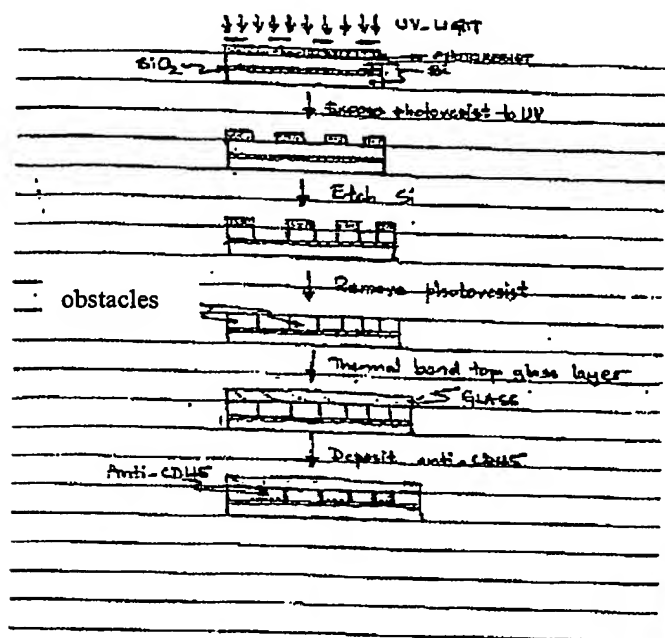 UV-LIGHT
PHOTORESIST
SiO2
Si
Expose photoresist to UV
Etch Si
Remove photoresist
obstacles
Thermal bond top glass layer
GLASS
Deposit anti-CD45
Anti-CD45